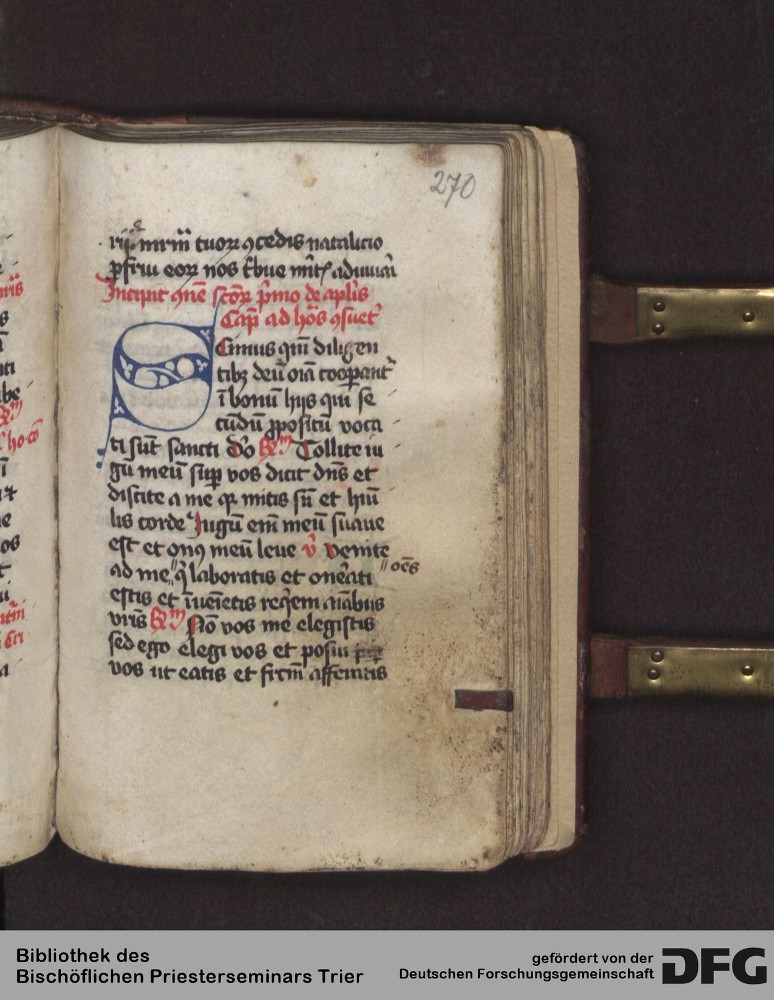 270
mrm̄ tuoꝝ ꝯcedis natalicio
eoꝝ nos
Incipit ꝯmē sc̄oꝝ pͥmo de apl̄is
Cap̄ ad hōs ꝯsuet᷑
Scimus qm̄ diligen
tibꝫ deū oīa coop̄ant᷑
ī bonū hijs qui se
cūdū ꝓpositū voca
ti sūt sancti Tollite iu
gū meū suꝑ vos dicit dn̄s et
discite a me qꝛ mitis sū et hūi
lis corde Iugū em̄ meū suaue
est et onꝯ meū leue v̄ venite
ad me q̇ laboratis et on̄ati oēs
estis et īueīetis reqͥem aīabus
vr̄is Nō vos me elegistis
sed ego elegi vos et posui
vos ut eatis et fr̄cm̄ afferatis
Bibliothek des
Bischöflichen Priesterseminars Trier
gefördert von der
Deutschen Forschungsgemeinschaft
DFG